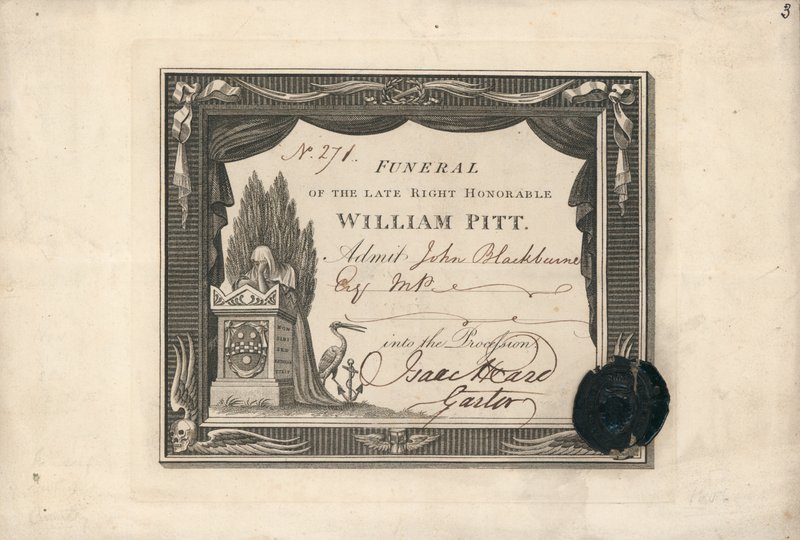 3
No. 271.
FUNERAL
OF THE LATE RIGHT HONORABLE
WILLIAM PITT.
Admit John Blackburne
Esq MP.
into the Procession.
Isaac Heard
Garter
NON
SIBI
SED